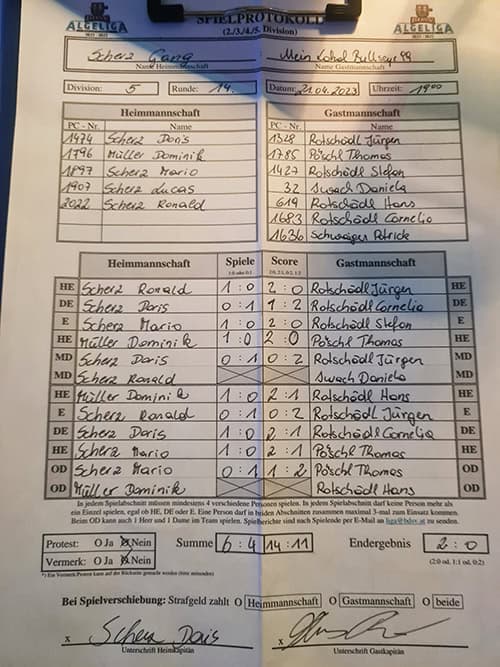 ALGELIGA
SPIELPROTOKOLL
ALGELIGA
(2./3./4./5. Division)
Scherz Gang
Name Heimmannschaft
Mein Lokal Bullseye 99
Name Gastmannschaft
Division: 5 Runde: 14. Datum: 21.04.2023 Uhrzeit: 19⁰⁰
Heimmannschaft Gastmannschaft
PC - Nr. Name PC - Nr. Name
1474 Scherz Doris 1328 Rotschädl Jürgen
1796 Müller Dominik 1785 Pöschl Thomas
1897 Scherz Mario 1427 Rotschädl Stefan
1907 Scherz Lucas 32 Swach Daniela
2022 Scherz Ronald 619 Rotschädl Hans
1683 Rotschädl Cornelia
1636 Schwaiger Patrick
Heimmannschaft Spiele Score Gastmannschaft
1:0 oder 0:1 2:0, 2:1, 0:2, 1:2
HE Scherz Ronald 1 : 0 2 : 0 Rotschädl Jürgen HE
DE Scherz Doris 0 : 1 1 : 2 Rotschädl Cornelia DE
E Scherz Mario 1 : 0 2 : 0 Rotschädl Stefan E
HE Müller Dominik 1 : 0 2 : 0 Pöschl Thomas HE
MD Scherz Doris 0 : 1 0 : 2 Rotschädl Jürgen MD
MD Scherz Ronald Swach Daniela MD
HE Müller Dominik 1 : 0 2 : 1 Rotschädl Hans HE
E Scherz Ronald 0 : 1 0 : 2 Rotschädl Jürgen E
DE Scherz Doris 1 : 0 2 : 1 Rotschädl Cornelia DE
HE Scherz Mario 1 : 0 2 : 1 Pöschl Thomas HE
OD Scherz Mario 0 : 1 1 : 2 Pöschl Thomas OD
OD Müller Dominik Rotschädl Hans OD
In jedem Spielabschnitt müssen mindestens 4 verschiedene Personen spielen. In jedem Spielabschnitt darf keine Person mehr als
ein Einzel spielen, egal ob HE, DE oder E. Eine Person darf in beiden Abschnitten zusammen maximal 3-mal zum Einsatz kommen.
Beim OD kann auch 1 Herr und 1 Dame im Team spielen. Spielberichte sind nach Spielende per E-Mail an liga@bdsv.at zu senden.
Protest: O Ja O Nein Summe 6 : 4 14 : 11 Endergebnis 2 : 0
Vermerk: O Ja O Nein (2:0 od. 1:1 od. 0:2)
*) Ein Vermerk/Protest kann auf der Rückseite gemacht werden (bitte ankreuzen)
Bei Spielverschiebung: Strafgeld zahlt O Heimmannschaft O Gastmannschaft O beide
x Scherz Doris x
Unterschrift Heimkapitän Unterschrift Gastkapitän